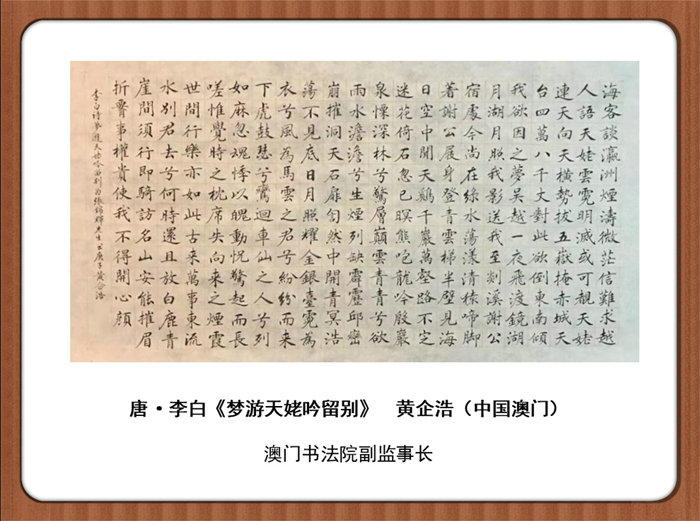 海客談瀛洲煙濤微茫信難求越
人語天姥雲霓明滅或可覩天姥
連天向天橫勢拔五嶽掩赤城天
台四萬八千丈對此欲倒東南傾
我欲因之夢吳越一夜飛渡鏡湖
月湖月照我影送我至剡溪謝公
宿處今尚在綠水蕩漾清猿啼脚
著謝公屐身登青雲梯半壁見海
日空中聞天鷄千巖萬壑路不定
迷花倚石忽已暝熊咆龍吟殷巖
泉慄深林兮驚層巔雲青青兮欲
雨水澹澹兮生煙列缺霹靂邱巒
崩摧洞天石扉訇然中開青冥浩
蕩不見底日月照耀金銀臺霓為
衣兮風為馬雲之君兮紛紛而来
下虎鼓瑟兮鸞迴車仙之人兮列
如麻忽魂悸以魄動怳驚起而長
嗟惟覺時之枕席失向来之煙霞
世間行樂亦如此古来萬事東流
水別君去兮何時還且放白鹿青
崖間須行即騎訪名山安能摧眉
折腰事權貴使我不得開心顏
李白詩夢遊天姥吟留別為張錦輝先生庚子黃企浩
唐·李白《梦游天姥吟留别》 黄企浩（中国澳门）
澳门书法院副监事长